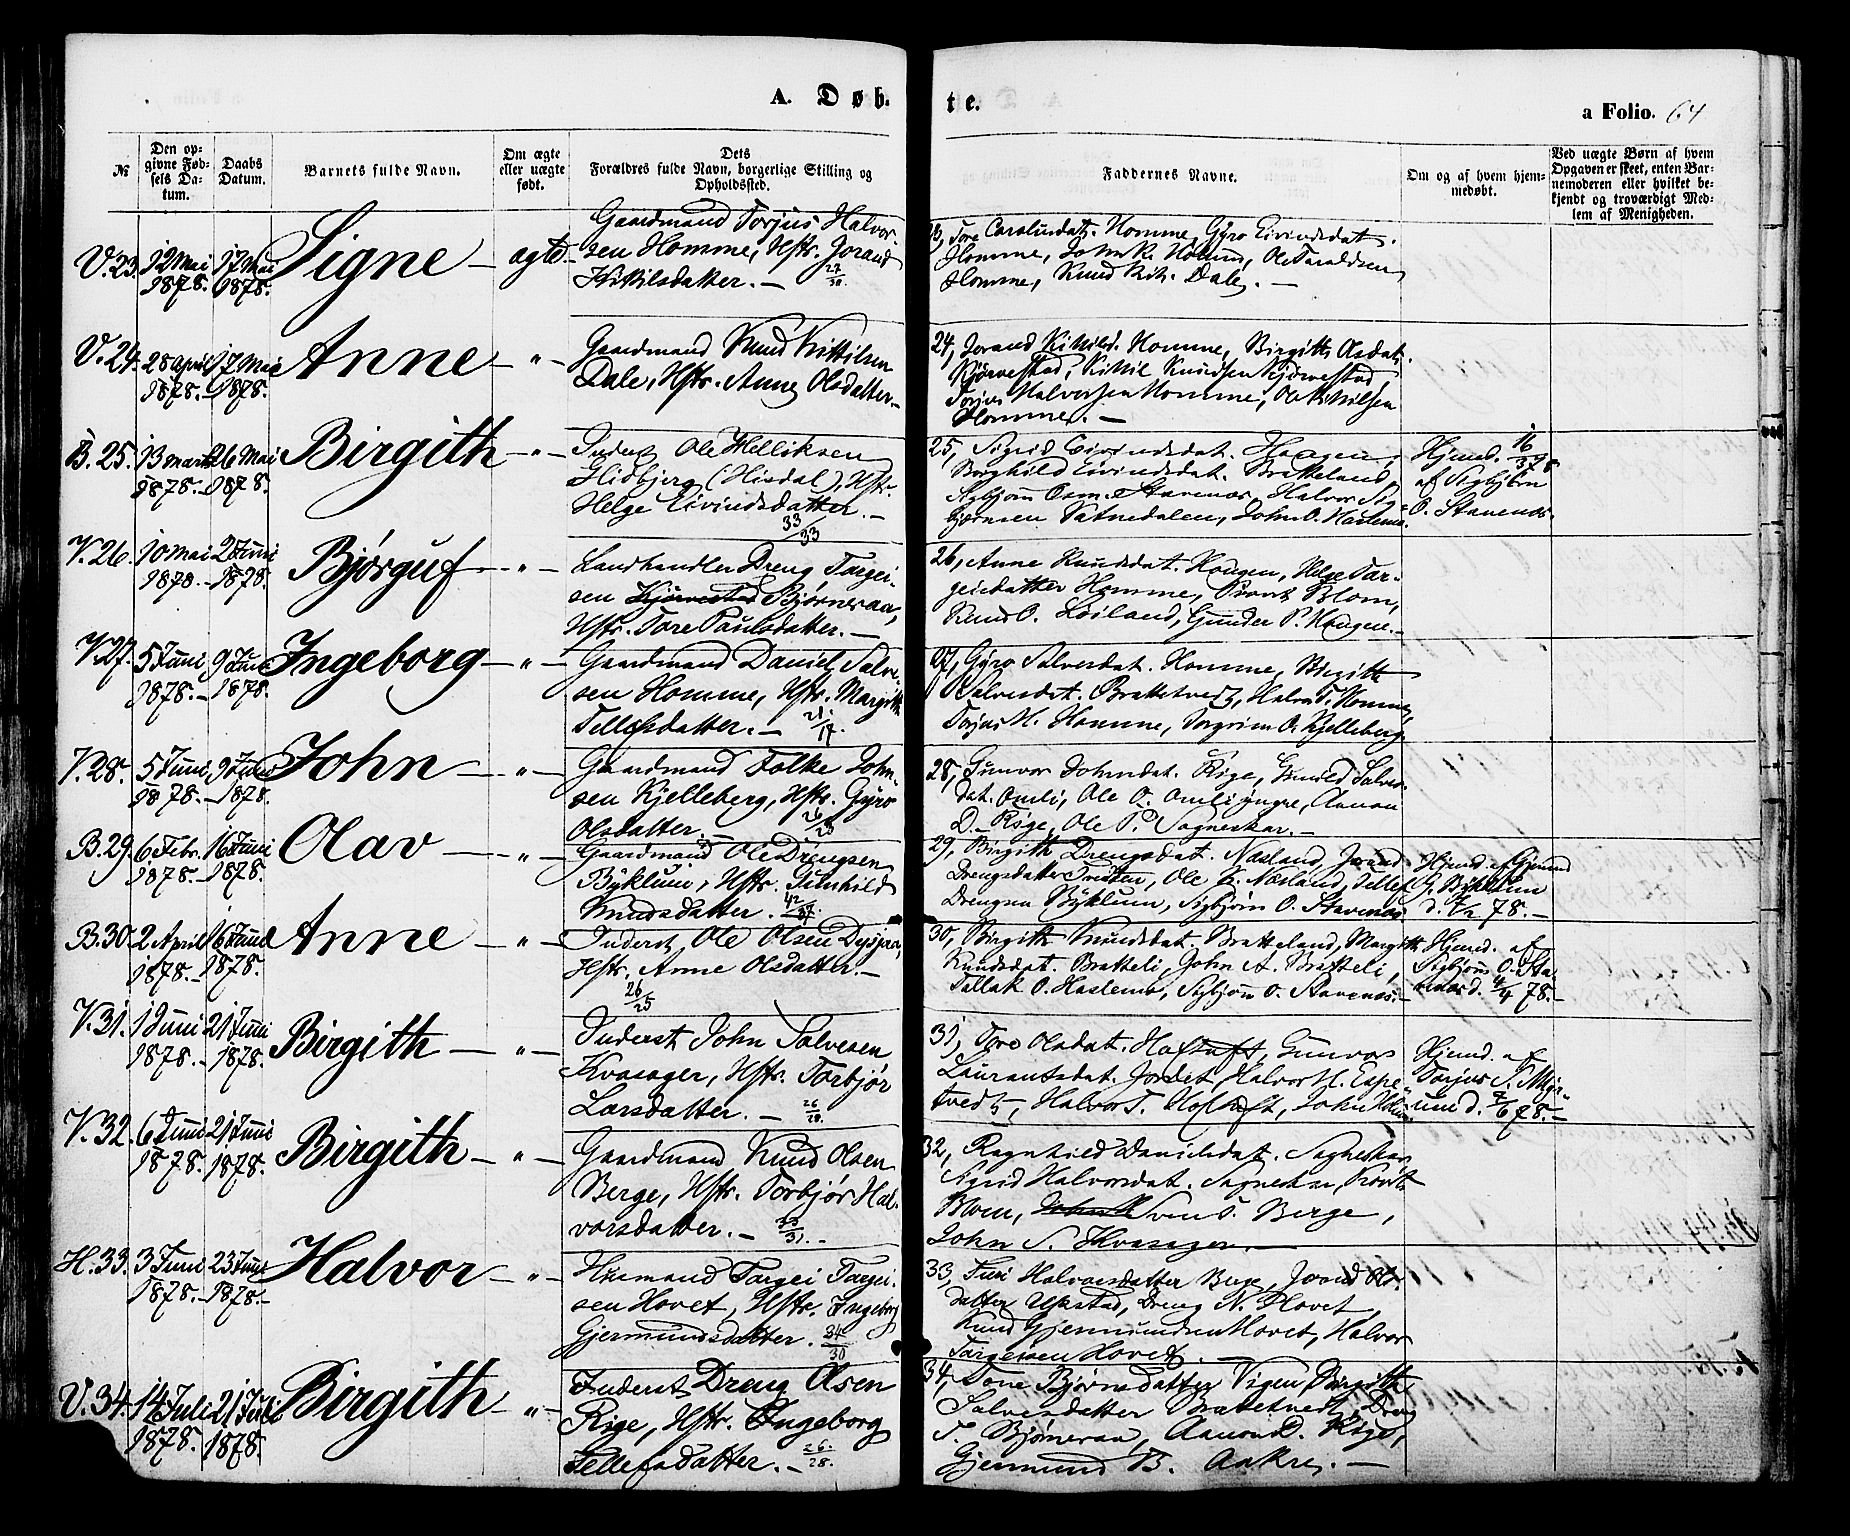 A. Døb.
te.
a Folio. 64
№
Den opgivne Fødsels Datum.
Daabs Datum.
Barnets fulde Navn.
Om ægte eller uægte født.
Dets Forældres fulde Navn, borgerlige Stilling og Opholdssted.
Faddernes Navne.
Om og af hvem hjemmedøbt.
Ved uægte Børn af hvem Opgaven er skeet, enten Barnemoderen eller hvilket bekjendt og troværdigt Medlem af Menigheden.
V. 23. 12 Mai 1878. 17 Mai 1878. Signe – ægte
Gaardmand Torjus Halvor-
sen Homme, Hstr. Jorand
Kittilsdatter. – 27/30
Tore Homme, Gyro Eivindsdat.
Homme, Ole Taraldsen
Homme, Knud Kit. Dale. –
V. 24. 28 April 1878. 17 Mai 1878. Anne – " –
Gaardmand Knud Kittilsen
Dale, Hstr. Anne Olsdatter –
24, Jorand Kittilsd. Homme, Birgith Olsdat.
Kjørvestad, Kittil Knudsen Kjørvestad,
Torjus Halvorsen Homme, Ole Kittilsen
Homme. –
B. 25. 13 Marts 1878. 26 Mai 1878. Birgith – " –
Inderst Ole Helliksen
Hidbjerg (Hisdal), Hstr.
Helge Eivindsdatter. –
33/33
25, Sigrid Eivindsdat. Haugen,
Borghild Eivindsdat. Bratteland,
Sigbjørn Osm. Stavenæs, Halvor Sig-
bjørnsen Vatnedalen, John O. Hasleme.
Hjemd. 16/3 78
af Sigbjørn
O. Stavenæs.
V. 26. 10 Mai 1878. 2 Juni 1878. Bjørguf – " –
Landhandler Dreng Targei-
sen Kjørvestad Bjørneraa,
Hstr. Tore Paulsdatter. –
26, Anne Knudsdat. Haugen, Helge Tar-
geisdatter Homme, Provst Blom,
Knud O. Løiland, Gunder P. Haugen. –
V. 27. 5 Juni 1878. 9 Juni 1878. Ingeborg – " –
Gaardmand Daniel Salve-
sen Homme, Hstr. Margith
Tellefsdatter. –
27, Gyro Salvesdat. Homme, Birgith
Salvesdat. Brattetvedt, Halvor T. Homme,
Torjus H. Homme, Torgrim O. Kjelleberg.
V. 28. 5 Juni 1878. 9 Juni 1878. John – " –
Gaardmand Folke John-
sen Kjelleberg, Hstr. Gyro
Olsdatter. –
28, Gunvor Johnsdat. Rige, Gunild Salves-
dat. Omli, Ole O. Omli yngre, Aanon
D. Rige, Ole P. Sagneskar. –
B. 29. 6 Febr. 1878. 16 Juni 1878. Olav – " –
Gaardmand Ole Drengsen
Byklum, Hstr. Gunhild
Knudsdatter. 42/37.
29, Birgith Drengsdat. Næsland, Jorand
Drengsdatter Ole K. Næsland, Tellef
Drengsen Byklum, Sigbjørn O. Stavenæs
Hjemd. af Gjermund
Byklum
78. –
B. 30. 2 April 1878. 16 Juni 1878. Anne – " –
Inderst Ole Olsen Dysjaa,
Hstr. Anne Olsdatter. –
26/25
30, Birgith Knudsdat. Bratteland, Margith
Knudsdat. Bratteli, John A. Bratteli,
Tallak O. Haslemo, Sigbjørn O. Stavenæs. –
Hjemd. af
Sigbjørn O. Sta-
venæs d. 4/4 78. –
V. 31. 1 Juni 1878. 21 Juni 1878. Birgith – " –
Inderst John Salvesen
Kvasager, Hstr. Torbjør
Larsdatter. –
31, Tore Olsdat. Hoftuft, Gunvor
Laurantsdat. Jordet, Halvor H. Espe-
tvedt, Halvor T. Hoftuft, John
Hjemd. af
Torjus
78. –
V. 32. 6 Juni 1878. 21 Juni 1878. Birgith – " –
Gaardmand Knud Olsen
Berge, Hstr. Torbjør Hal-
vorsdatter. –
32, Ragnhild Danielsdat. Sagneskar,
Sigrid Halvorsdat. Sagneskar, Provst
Blom, Svein S. Berge,
John S. Kvasager. –
H. 33. 3 Juni 1878. 23 Juni 1878. Halvor – " –
Husmand Targei Targei-
sen Hovet, Hstr. Ingeborg
Gjermundsdatter. 34/30
33, Turi Halvorsdatter Berge, Jorand
datter Upstad, Dreng N. Hovet,
Knud Gjermundsen Hovet, Halvor
Targeisen Hovet. –
V. 34. 14 Juli 1878. 21 Juli 1878. Birgith – " –
Inderst Dreng Olsen
Rige, Hstr. Ingeborg
Tellefsdatter. – 26/28.
34, Tone Bjørnsdatter Vigen, Birgith
Salvesdatter Brattetvedt, Dreng
T. Bjørneraa, Aanon D. Rige,
Gjermund B. Aakre. –